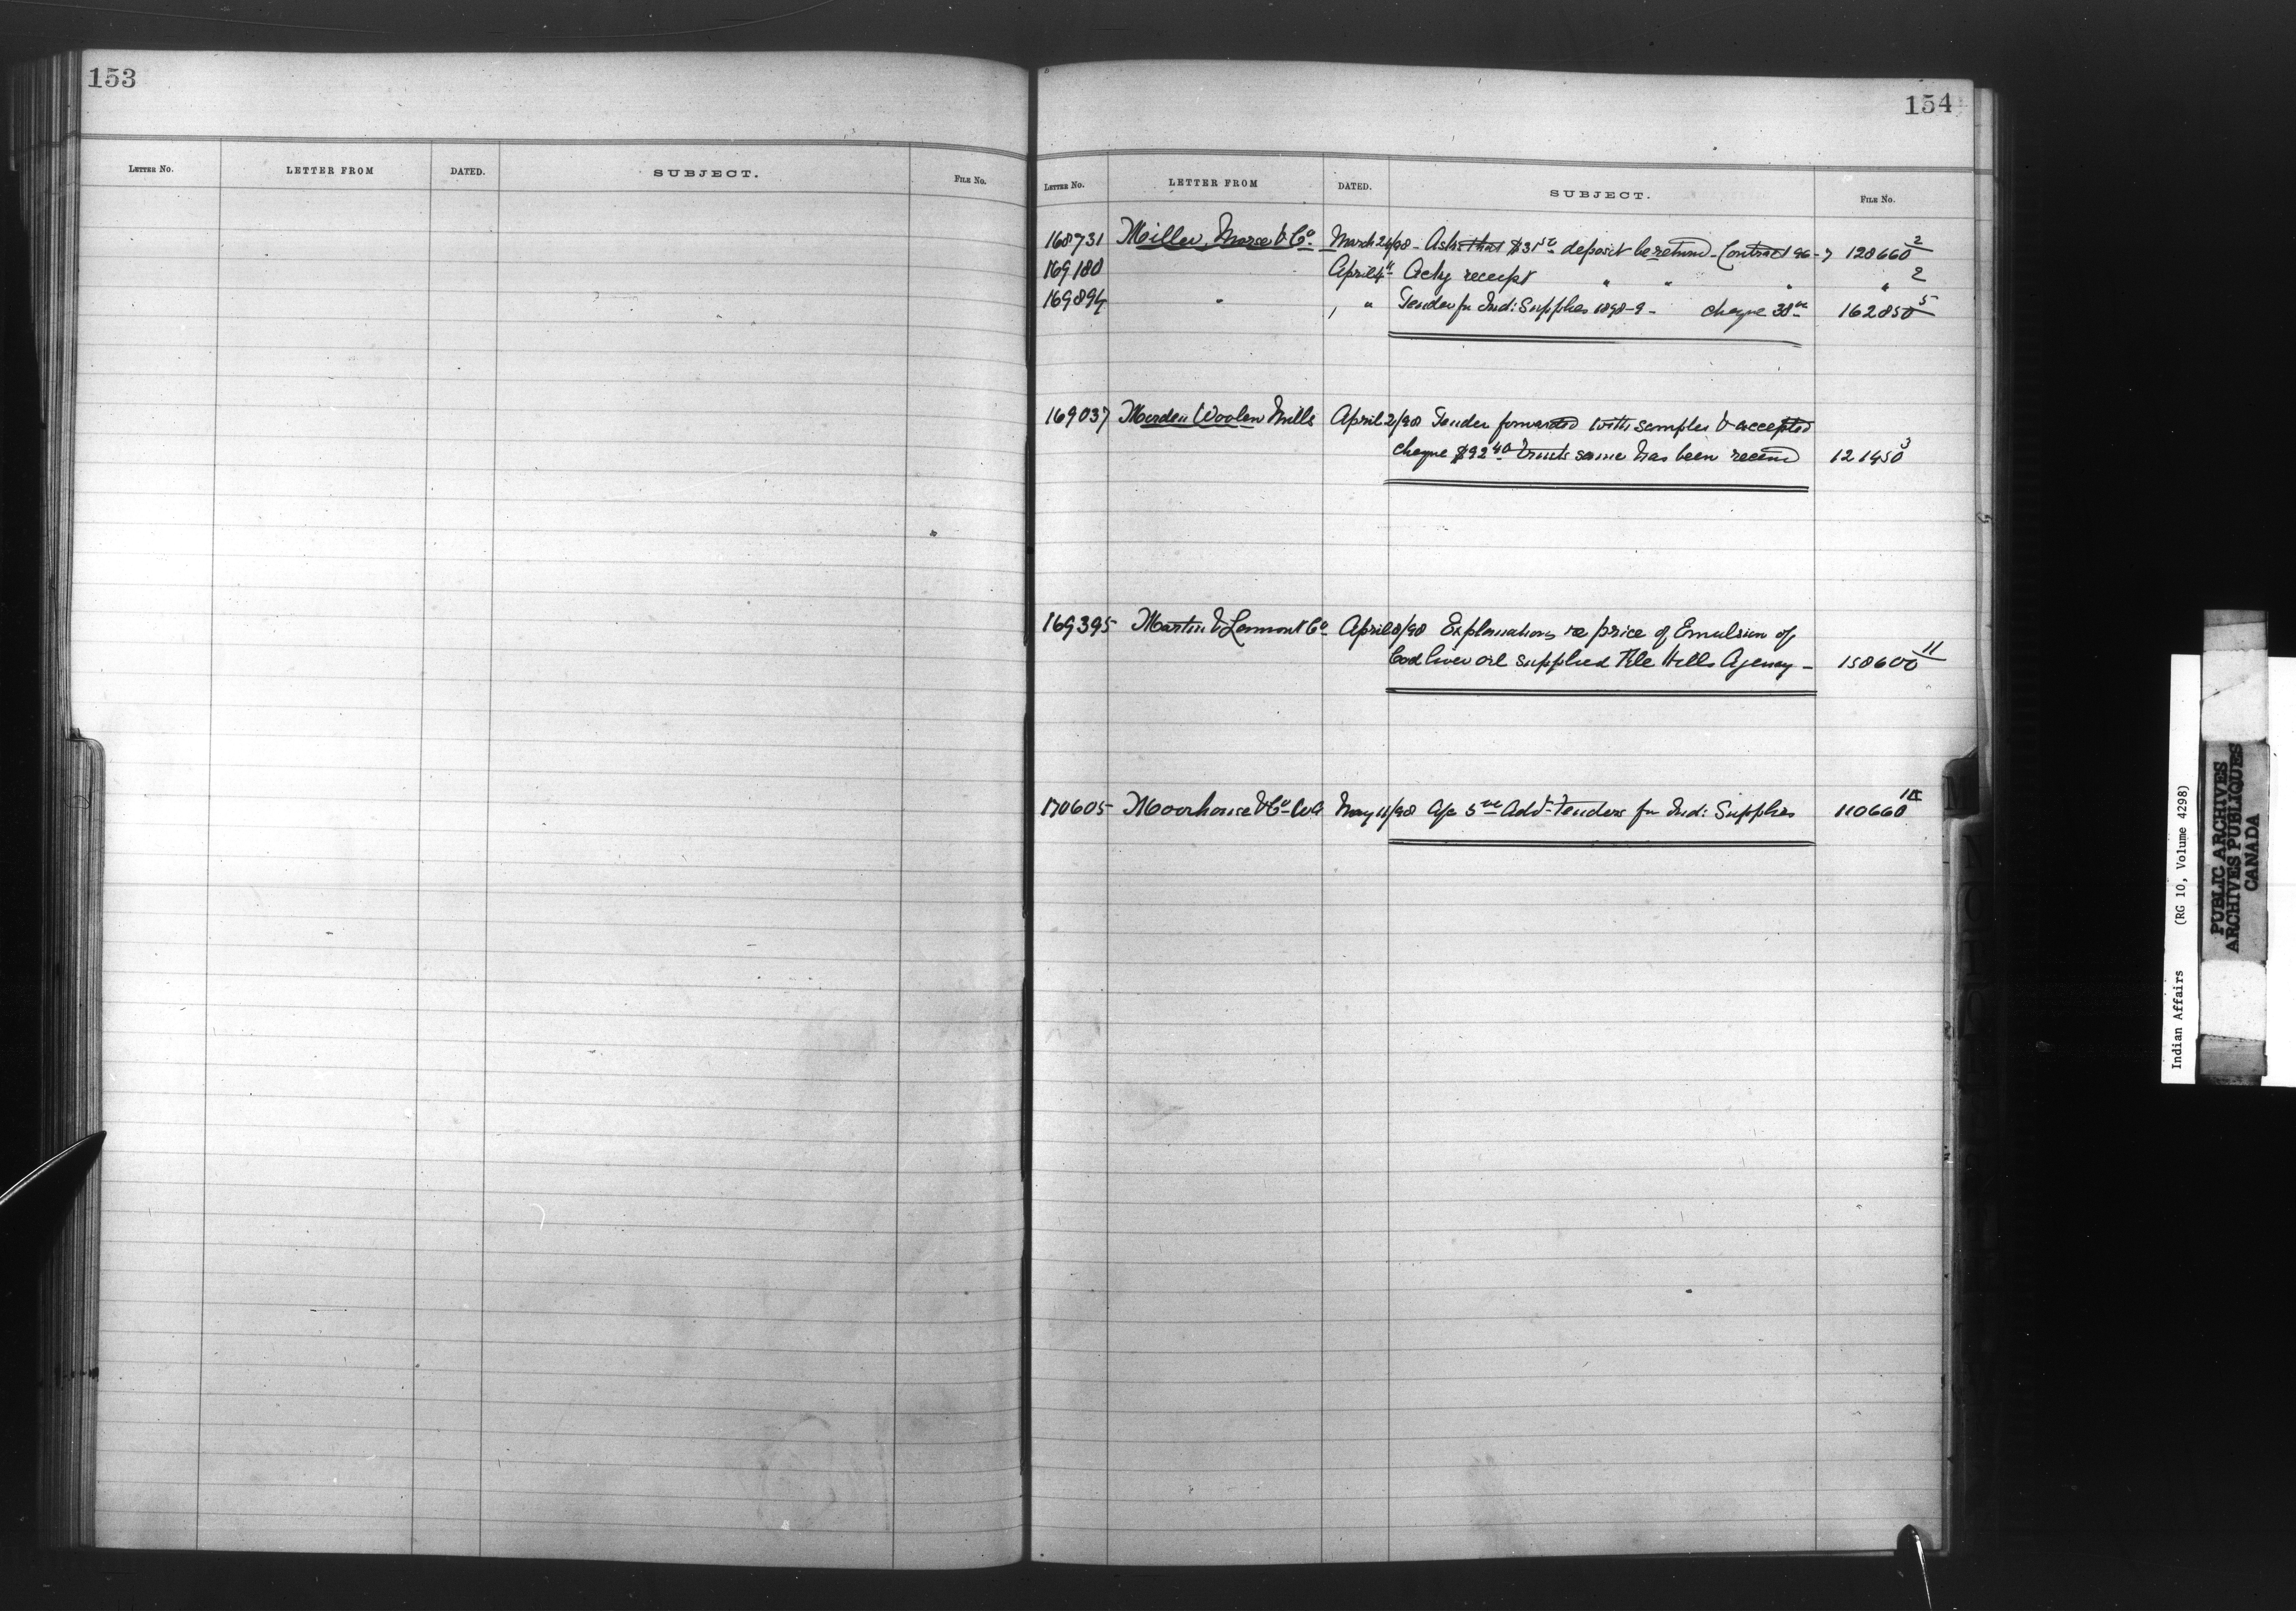 153
LETTER NO. LETTER FROM DATED. SUBJECT. FILE NO.
154
LETTER NO. LETTER FROM DATED. SUBJECT. FILE NO.
168731 Miller, Morse & Co. March 24/98 - Asks that $31 deposit be returnd - Contract 96-7 128660 2
169180 April 4 " Ackg receipt " " " " 2
169894 " , " Tender for Ind: Supplies 1898-9 - cheque 38 162850 5
169037 Morden Woolen Mills April 2/98 Tender forwarded with samples & accepted
cheque $92 40 trusts same has been receivd 121450 3
169395 Martin & Lamont Co April 8/98 Explanations re price of Emulsion of
Cod liver oil supplied File Hills Agency - 158600 11
170605 Moorhouse & Co WA May 11/98 A/c 5 Advt Tenders for Ind: Supplies 110660
Indian Affairs (RG 10, Volume 4298)
PUBLIC ARCHIVES
ARCHIVES PUBLIQUES
CANADA